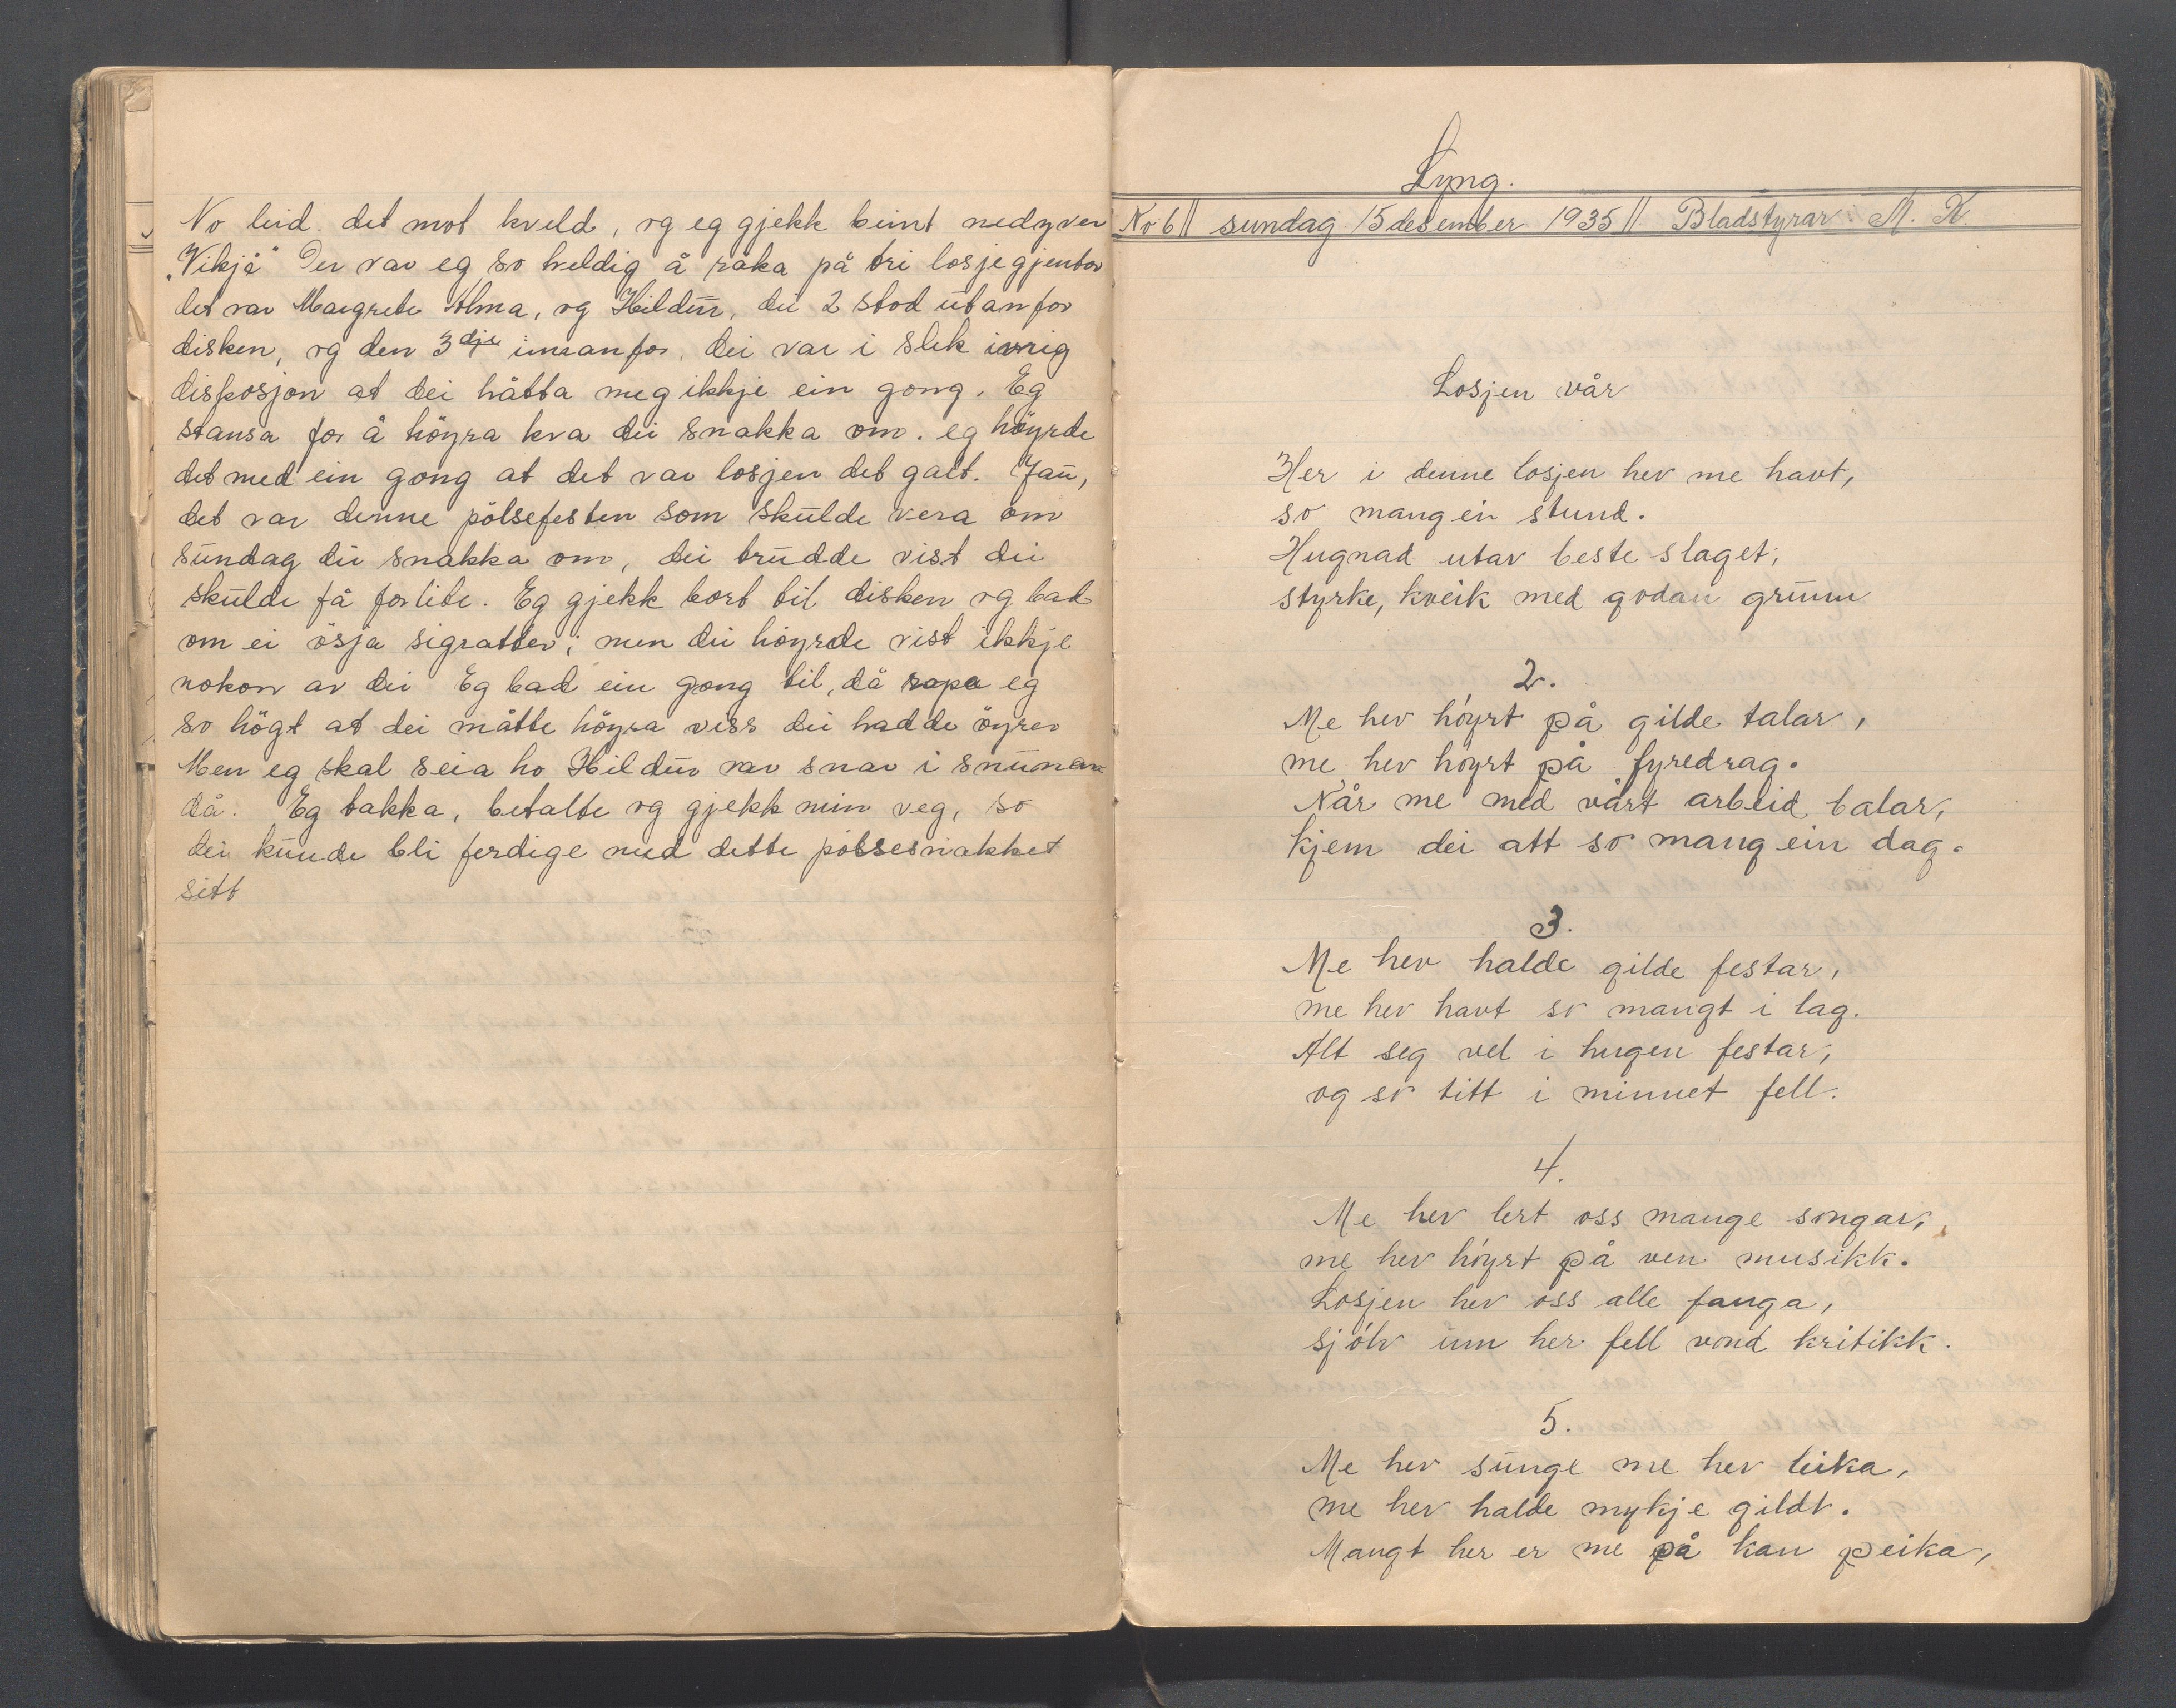 No leid det mot kveld, og eg gjekk beint nedyver
"Vikjå" Der var eg so heldig å råka på tri losjegjentor
det var Margrete Alma, og Hildur, dei 2 stod utanfor
disken, og den 3dje innanfor, dei var i slik ivrig
disposjon at dei håtta meg ikkje ein gong. Eg
stansa for å höyra kva dei snakka om. eg höyrde
det med ein gong at det var losjen det galt. Jau,
det var denne pölsefesten som skulde vera om
sundag dei snakka om, dei trudde vist dei
skulde få for lite. Eg gjekk bort til disken og bad
om ei ösja sigrattor; men dei höyrde vist ikkje
nokon av dei Eg bad ein gong til, då ropa eg
so högt at dei måtte höyra viss dei hadde öyror
Men eg skal seia ho Hildur var snar i snunan
då. Eg takka, betalte og gjekk min veg, so
dei kunde bli ferdige med dette pölsesnakket
sitt
Lyng.
No 6 || sundag 15 desember 1935 || Bladstyrar: M. K.
Losjen vår
Her i denne losjen hev me havt,
so mang ein stund.
Hugnad utav beste slaget;
styrke, kveik med godan grunn
2.
Me hev höyrt på gilde talar,
me hev höyrt på fyredrag.
Når me med vårt arbeid balar,
kjem dei att so mang ein dag.
3.
Me hev halde gilde festar,
me hev havt so mangt i lag.
Alt seg vel i hugen festar,
og so titt i minnet fell.
4.
Me hev lert oss mange songar,
me hev höyrt på ven musikk.
Losjen hev oss alle fanga,
sjölv um her fell vond kritikk.
5.
Me hev sunge me hev leika,
me hev halde mykje gildt.
Mangt her er me på kan peika,